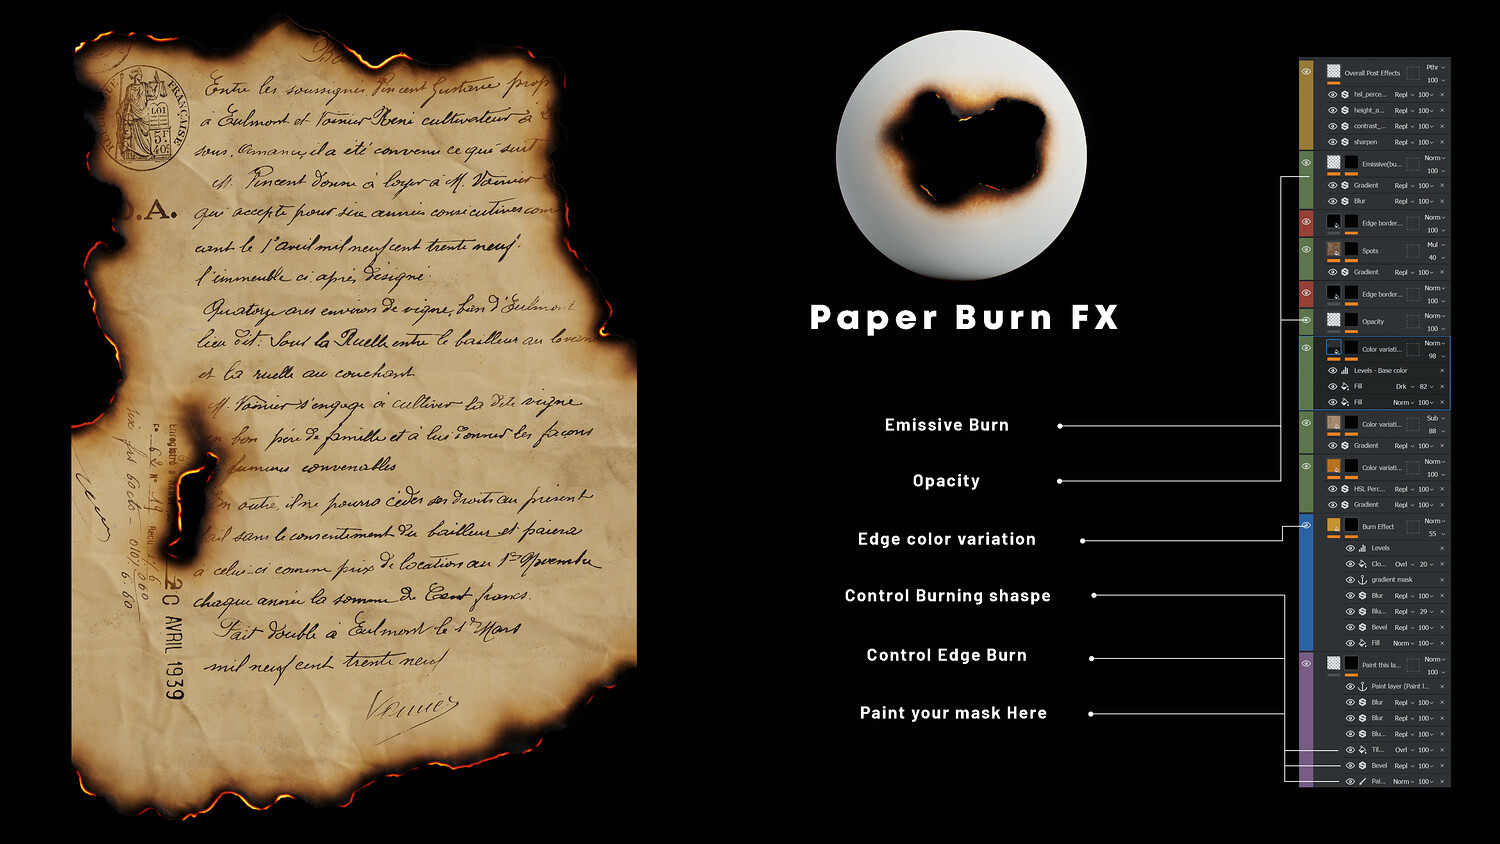 RÉPUBLIQUE FRANÇAISE
LOI
5F
40c
D.A.
Entre les soussignés Vincent Gustave prop
à Eulmont et Voinier René cultivateur à
sous, Amance, il a été convenu ce qui suit
M. Vincent donne à loyer à M. Voinier
qui accepte pour six années consécutives com
cant le 1er avril mil neuf cent trente neuf.
l'immeuble ci après désigné
Quatorze ares environ de vigne, ban d'Eulmont
lieu dit: Sous la Ruelle entre le bailleur au levant
et la ruelle au couchant
M. Voinier s'engage à cultiver la dite vigne
en bon père de famille et à lui donner les façons
fumures convenables
En outre, il ne pourra céder ses droits au présent
bail sans le consentement du bailleur et paiera
à celui-ci comme prix de location au 1er Novembre
chaque année la somme de Cent francs.
Fait double à Eulmont le 1er Mars
mil neuf cent trente neuf
2 C AVRIL 1939
Paper Burn FX
Emissive Burn
Opacity
Edge color variation
Control Burning shaspe
Control Edge Burn
Paint your mask Here
Overall Post Effects Pthr
100
hsl_perce... Repl 100
height_a... Repl 100
contrast_... Repl 100
sharpen Repl 100
Emissive(bu... Norm
100
Gradient Repl 100
Blur Repl 100
Edge border... Norm
100
Spots Mul
40
Gradient Repl 100
Edge border... Norm
100
Opacity Norm
100
Color variati... Norm
98
Levels - Base color
Fill Drk 82
Fill Norm 100
Color variati... Sub
88
Gradient Repl 100
Color variati... Norm
100
HSL Perc... Repl 100
Gradient Repl 100
Burn Effect Norm
55
Levels
Clo... Ovrl 20
gradient mask
Blur Repl 100
Blu... Repl 29
Bevel Repl 100
Fill Norm 100
Paint this la... Norm
100
Paint layer (Paint l...
Blur Repl 100
Blur Repl 100
Blu... Repl 100
Til... Ovrl 100
Bevel Repl 100
Pai... Norm 100